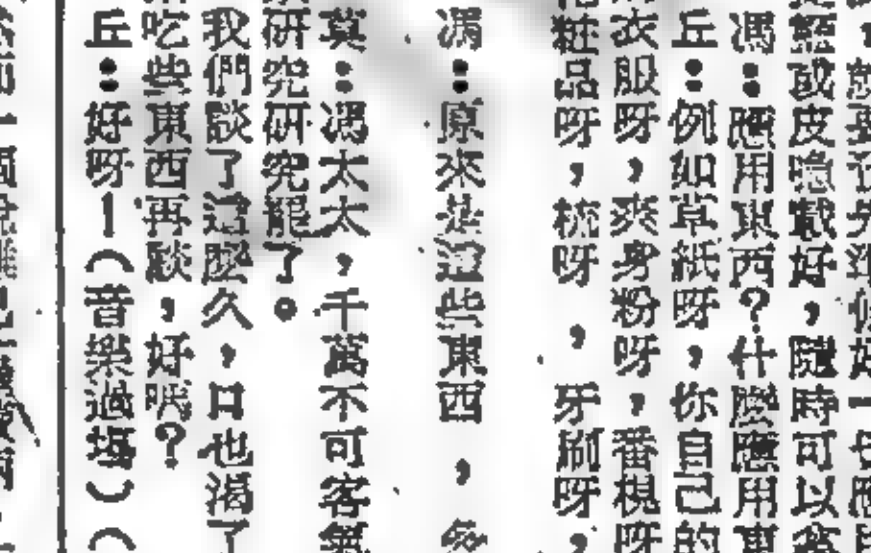 就要
籃或皮喼載好，隨時可以拿
馮：應用東西？什麼應用東
丘：例如草紙呀，你自己的
衣服呀，爽身粉呀，番梘呀
粧品呀，梳呀，牙刷呀，
馮：原來是這些東西，
莫：馮太太，千萬不可客氣
研究研究罷了。
我們談了這麼久，口也渴了
吃些東西再談，好嗎？
丘：好呀！（音樂過塲）（